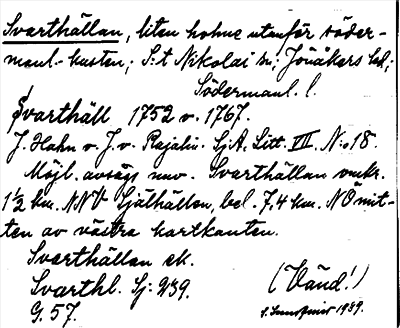 Svarthällan, liten holme utanför söder-
manl.-kusten; S:t Nikolai sn; Jönåkers hd;
Södermanl. l.
Svarthäll 1752 o. 1767.
J. Hahn o. J. v. Rajalin. SjA. Litt. VII. N:o 18.
Möjl. avsågs nuv. Svarthällan omkr.
1½ km. NNV Själhällan, bel. 7,4 km. NÖ mit-
ten av västra kartkanten.
Svarthällan ek.
Svarthl. Sj: 239.
G. 57.
(Vänd!)
1989.